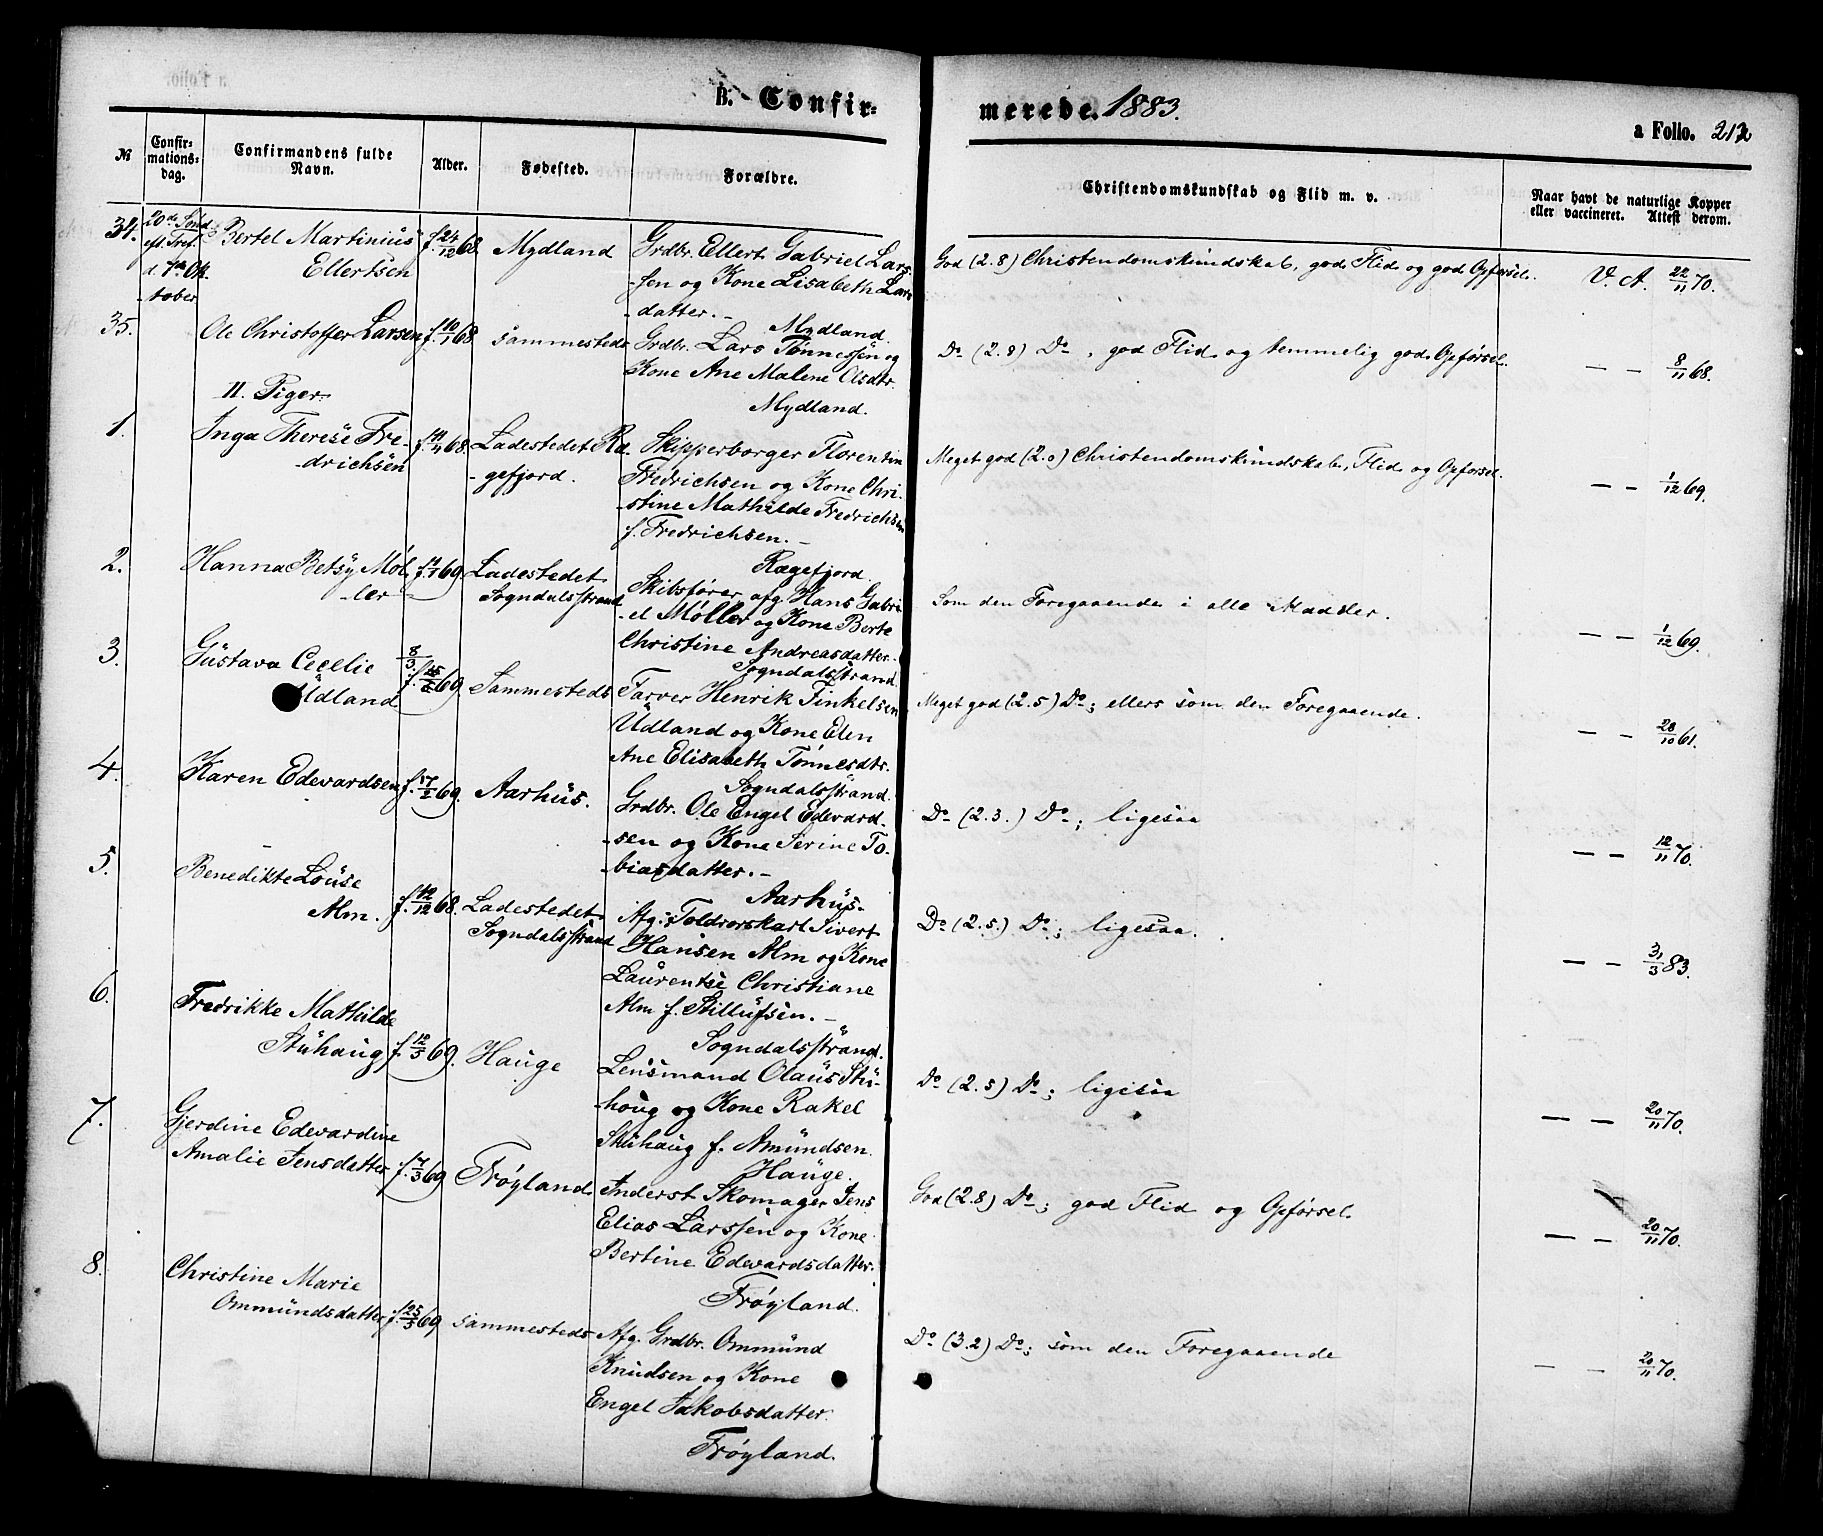 B. Confir-
merede. 1883.
a Folio. 212
№
Confir-
mations-
dag.
Confirmandens fulde
Navn.
Alder.
Fødested.
Forældre.
Christendomskundskab og Flid m. v.
Naar havt de naturlige Kopper
eller vaccineret. Attest derom.
34.
20de Sønd.
eft. Tref.
d. 7de Ok-
tober
Bertel Martinius
Ellertsen
f. 24/12 68
Mydland
Grdbr. Ellert Gabriel Lars-
sen og Kone Lisabeth Lars-
datter. –
Mydland.
God (2.8) Christendomskundskab, god Flid og god Opførsel.
V. A. 22/11 70.
35.
Ole Christoffer Larsen
f. 10/1 68
sammesteds
Grdbr. Lars Tønnessen og
Kone Ane Malene Olsdtr.
Mydland.
Do (2.8) Do, god Flid og temmelig god Opførsel.
– – 8/11 68.
II. Piger.
1.
Inga Therese Fre-
drichsen
68.
Ladestedet Ræ-
gefjord.
Skipperborger Florentin
Fredrichsen og Kone Chri-
stine Mathilde Fredrichsen
f. Fredrichsen. –
Rægefjord.
Meget god (2.0) Christendomskundskab, Flid og Opførsel.
– – 1/12 69.
2.
Hanna Betsy Møl-
ler
69.
Ladestedet
Sogndalsstrand
Skibsfører afg. Hans Gabri-
el Møller og Kone Berte
Christine Andreasdatter.
Sogndalsstrand.
Som den Foregaaende i alle Maader.
– – 1/12 69.
3.
Gustava Cecelie
Udland
8/3
f. 69.
Sammesteds
Farver Henrik Finkelsen
Udland og Kone Elen
Ane Elisabeth Tønnesdtr.
Sogndalsstrand.
Meget god (2.5) Do; ellers som den Foregaaende.
– – 28/10 61.
4.
Karen Edevardsen
f. 17/2 69.
Aarhus.
Grdbr. Ole Engel Edevard-
sen og Kone Serine To-
biasdatter. –
Aarhus.
Do (2.3.) Do; ligesaa
– – 12/11 70.
5.
Benedikte Louse
Alm.
f. 12/12 68.
Ladestedet
Sogndalsstrand
Afg. Toldrorskarl Sivert
Hansen Alm og Kone
Laurentse Christiane
Alm f. Stillufsen. –
Sogndalsstrand.
Do (2.5.) Do; ligesaa.
– – 31/3 83.
6.
Fredrikke Mathilde
Stuhaug
f. 12/3 69.
Hauge
Lensmand Olaus Stu-
houg og Kone Rakel
Stuhaug f. Amundsen.
Hauge.
Do (2.5) Do; ligesaa
– – 20/11 70.
7.
Gjerdine Edevardine
Amalie Jensdatter
f. 7/3 69
Frøyland
Inderst Skomager Jens
Elias Larssen og Kone
Bertine Edevardsdatter.
Frøyland.
God (2.8) Do; god Flid og Opførsel.
– – 20/11 70.
8.
Christine Marie
Ommundsdatter
f. 25/3 69
sammesteds
Afg. Grdbr. Ommund
Knudsen og Kone
Engel Jakobsdatter.
Frøyland.
Do (3.2) Do; som den Foregaaende
– – 20/11 70.